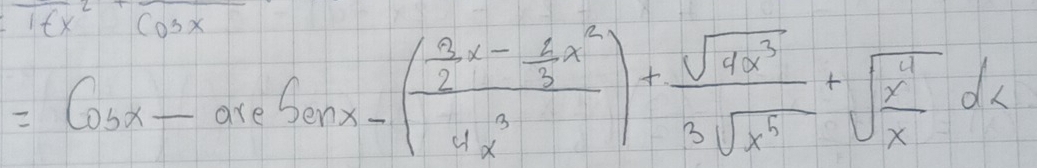 1+x² + Cosx
= Cosx - arc Senx - ( (3/2 x - 2/3 x²) / 4x³ ) + √(4x³) / 3√(x⁵) + √(x⁴/x) dx